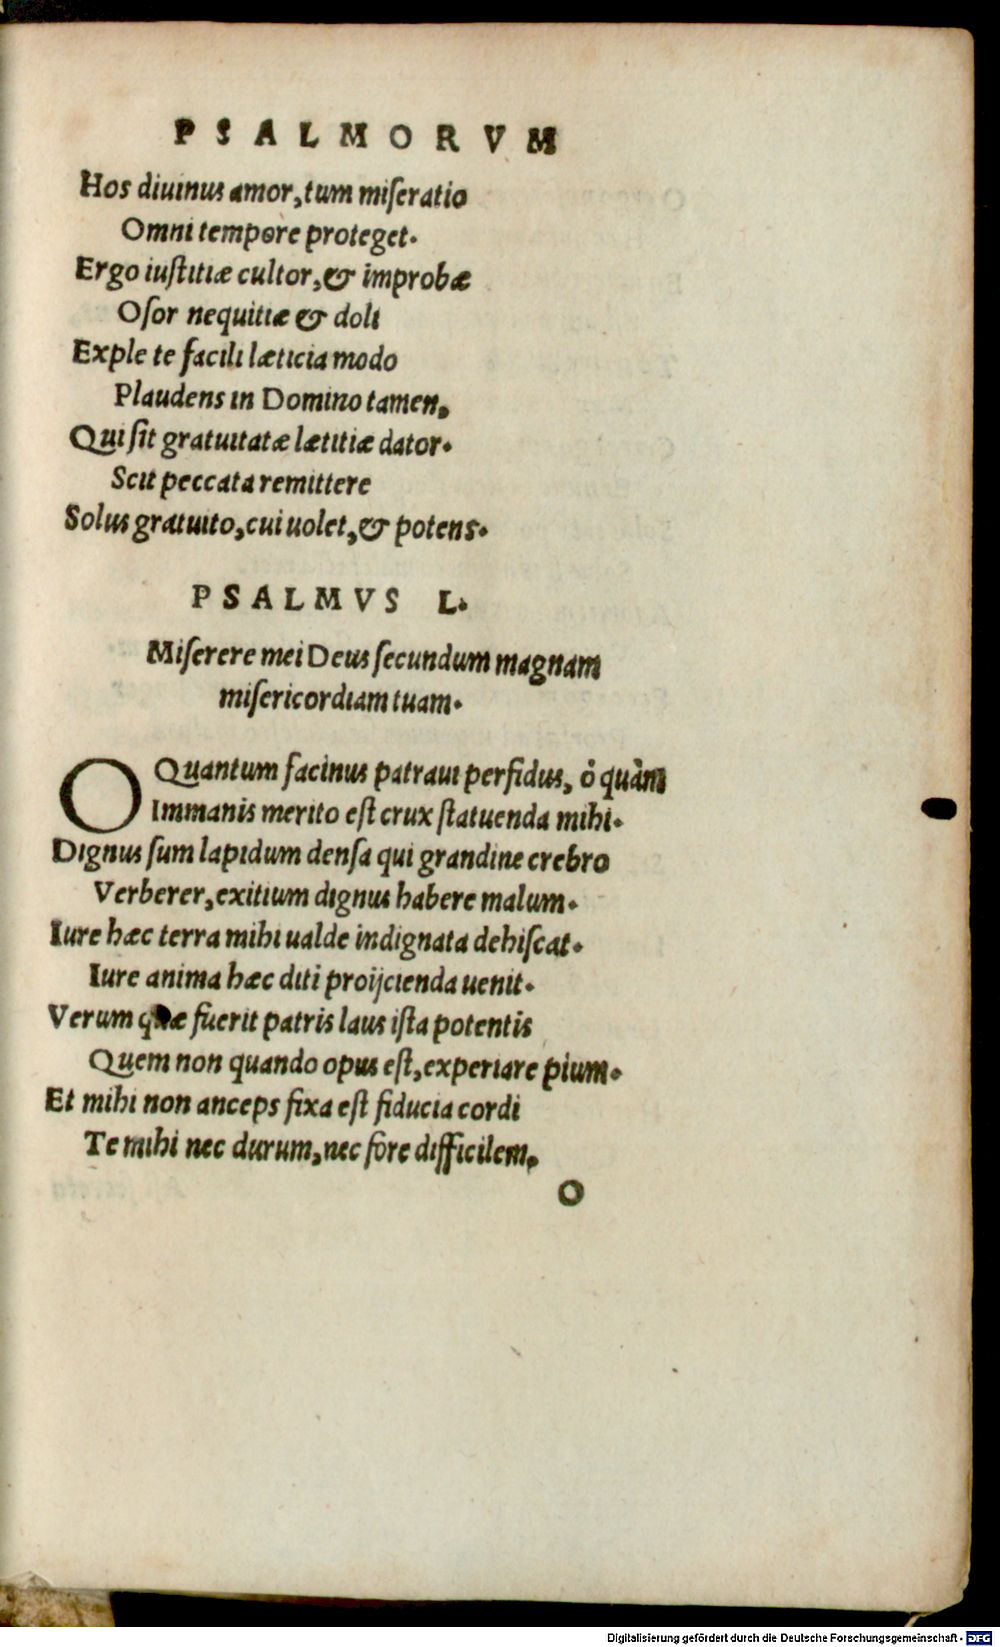 PSALMORVM
Hos diuinus amor, tum miſeratio
Omni tempore proteget.
Ergo iuſtitiæ cultor, & improbæ
Oſor nequitiæ & doli
Exple te facili læticia modo
Plaudens in Domino tamen,
Qui ſit gratuitatæ lætitiæ dator.
Scit peccata remittere
Solus gratuito, cui uolet, & potens.
PSALMVS L.
Miſerere mei Deus ſecundum magnam
miſericordiam tuam.
O Quantum facinus patraui perfidus, ô quàm
Immanis merito eſt crux ſtatuenda mihi.
Dignus ſum lapidum denſa qui grandine crebro
Verberer, exitium dignus habere malum.
Iure hæc terra mihi ualde indignata dehiſcat.
Iure anima hæc diti proijcienda uenit.
Verum quæ fuerit patris laus iſta potentis
Quem non quando opus eſt, experiare pium.
Et mihi non anceps fixa eſt fiducia cordi
Te mihi nec durum, nec fore difficilem,
O
Digitalisierung gefördert durch die Deutsche Forschungsgemeinschaft - DFG